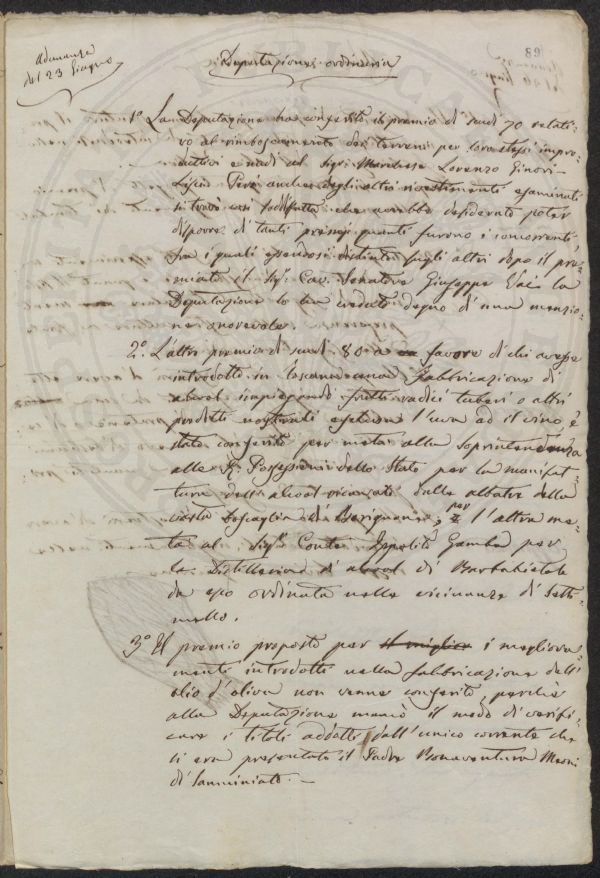 Adunanza
del 23 Giugno
Deputazione ordinaria
1.° La Deputazione ha conferito il premio di scudi 70 relati-
vo al rimboscamento dei terreni per loro stessi impro-
duttivi e nudi al Sigr. Marchese Lorenzo Ginori-
Lisci. Però anche degli altri rivestimenti esaminati
si trovò così soddisfatta che avrebbe desiderato poter
disporre di tanti premi quanti furono i concorrenti
fra i quali essendosi distinto sugli altri dopo il pre-
miato il Sigr. Cav. Senatore Giuseppe la
Deputazione lo ha creduto degno di una menzio-
ne onorevole.
2.° L'altro premio di scudi 80 a favore di chi avesse
introdotto in toscana una fabbricazione di
alcool impiegando frutti radici tuberi o altri
prodotti nostrali esclusa l'uva ed il vino, è
stato conferito per metà alla Soprintendenza
alle R. Possessioni dello Stato per la manifat-
tura dell'alcool ricavato dalle albatre della
vasta boscaglia di per l'altra me-
tà al Sigr. Conte Ippolito Gamba per
la Distilleria d'alcool di Barbabietole
da esso ordinata nelle vicinanze di Setti-
mello.
3.° Il premio proposto per il miglior i migliora-
menti introdotti nella fabbricazione dell'
olio d'oliva non venne conferito, perchè
alla Deputazione mancò il modo di verifi-
care i titoli addotti dall'unico corrente che
si era presentato il Padre Bonaventura
di Samminiato.—